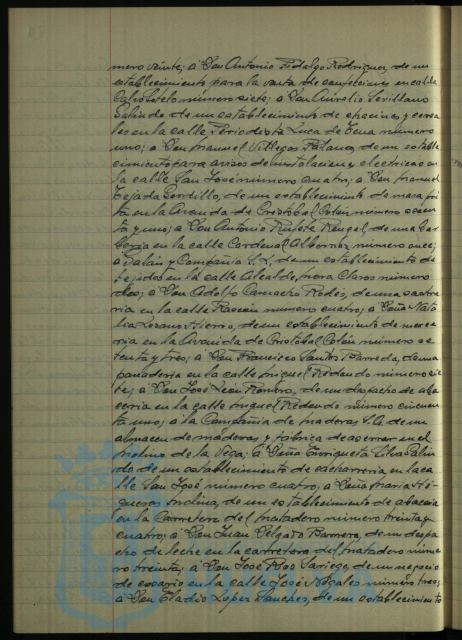 mero veinte; a Don Antonio Fidalgo Rodriguez, de un
establecimiento para la venta de confecciones en calle
Calvo Sotelo número siete; a Don Aurelio Sevillano
Galindo de un establecimiento de especias y cerea
les en la calle Periodista Luca de Tena número
uno; a Don Manuel Villegas de un estable
cimiento para avisos de instalaciones electricas en
la calle San José número cuatro; a Don Manuel
Tejada Gordillo, de un establecimiento de masa fri
ta en la Avenida de Cristobal Colón número sesen
ta y uno; a Don Antonio Rufete Rengel, de una bar
beria en la calle Cardenal Albornoz número once;
a Galán y Compañia S.L. de un establecimiento de
tejidos en la calle Alcalde Mora Claros número
dos; a Don Adolfo Camacho de una sastre
ria en la calle Rascón número cuatro; a Doña Nata
lia Lozano Hierro, de un establecimiento de merce
ria en la Avenida de Cristobal Colón número se
tenta y tres; a Don Francisco Santos Barreda, de una
panaderia en la calle Miguel Redondo número sie
te; a Don José León Romero, de un despacho de aba
ceria en la calle Miguel Redondo número cincuen
ta uno; a la Compañia de Maderas S.A. de un
almacen de maderas y fábrica de aserrar en el
Molino de la Vega; a Doña Enriqueta Silva Galin
do de un establecimiento de cacharreria en la ca
lle San José número cuatro; a Doña Maria Hi
gueras Molina, de un establecimiento de abaceria
en la Carretera del Matadero número treinta y
cuatro; a Don Juan Delgado Barrera, de un despa
cho de leche en la carretera del Matadero núme
ro treinta; a Don José Rgo Sariego, de un negocio
de en la calle José Nogales número tres;
a Don Eladio Lopez Sanchez, de un establecimiento